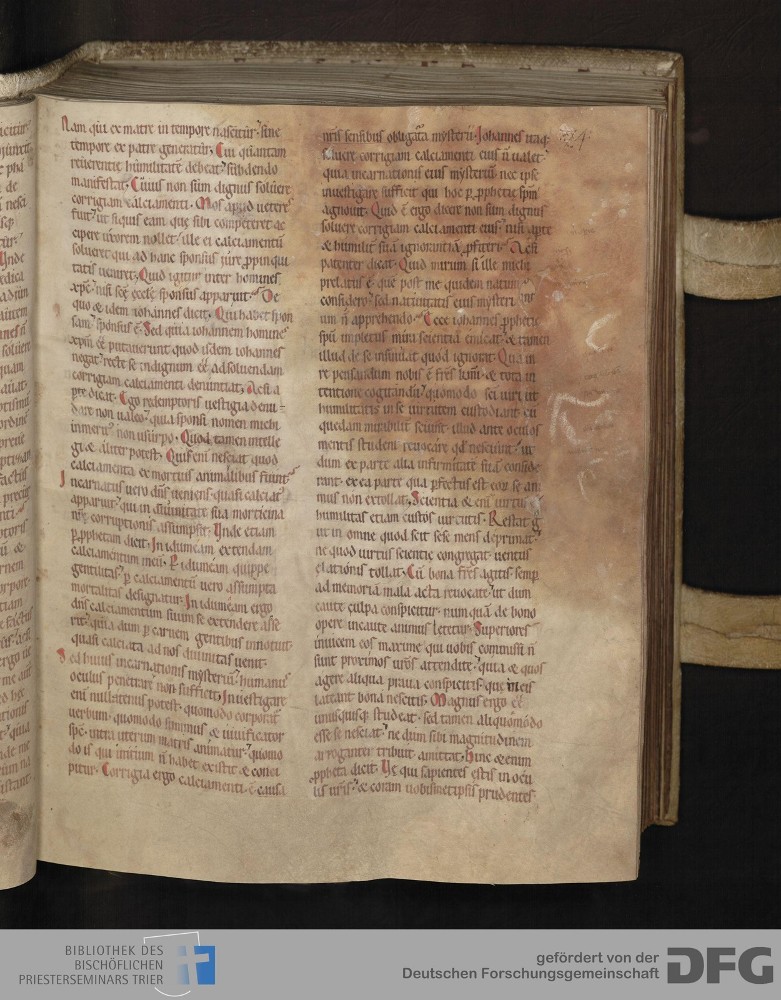 Nam qui ex matre in tempore nascitur: sine
tempore ex patre generatur. Cui quantam
reuerentie humilitatē debeat: subdendo
manifestat. Cuius non sum dignus soluere
corrigiam calciamenti. Mos apud ueteres
fuit: ut siquis eam que sibi competeret ac
cipere uxorem nollet: ille ei calciamentū
solueret qui ad hanc sponsus iure ꝓpinqui
tatis ueniret. Quid igitur inter homines
xp̄c nisi scē eccłe sponsus apparuit: De
quo & idem iohannes dicit. Qui habet spon
sam: sponsus ē. Sed quia iohannem homines
xpm̄ eē putauerunt quod isdem iohannes
negat: recte se indignum eē ad soluendam
corrigiam calciamenti denuntiat. Ac si a
ꝑte dicat. Ego redemptoris uestigia denu
dare non ualeo: quia sponsi nomen michi
inmerit' non usurpo. Quod tamen intelle
gi & aliter potest. Quis eni nesciat quod
calciamenta ex mortuis animalibus fiunt:
Incarnatus uero dn̄s ueniens: quasi calciat'
apparuit: qui in diuinitate sua morticina
nr̄e corruptionis assumpsit. Unde etiam
ꝑ ꝓphetam dicit. In idumeam extendam
calciamentum meū. P idumeam quippe
gentilitas: ꝑ calciamentū uero assumpta
mortalitas designatur. In idumeam ergo
dn̄s calciamentum suum se extendere asse
rit: quia dum ꝑ carnem gentibus innotuit
quasi calciata ad nos diuinitas uenit.
Sed huius incarnationis mysteriū: humanus
oculus penetrare non sufficit. Inuestigare
eni nullatenus potest: quomodo corporat'
uerbum. quomodo summus & uiuificator
spc̄. intra uterum matris animatur: quomo
do is qui initium n̄ habet existit & conci
pitur. Corrigia ergo calciamenti. ē causa
nris sensibus obligata mysterii. Iohannes itaq:
soluere corrigiam calciamenti eius n̄ ualet:
quia incarnationis eius mysterium nec ipse
inuestigare sufficit qui hoc ꝑ ꝓphetie spm̄
agnouit. Quid ē ergo dicere non sum dignus
soluere corrigiam calciamenti eius: nisi apte
& humilit' suā ignorantiā ꝓfiteri: Ac si
patenter dicat. Quid mirum si ille michi
prelatus ē que post me quidem natum
considero: sed natiuitatis eius mysteri
um n̄ apprehendo. Ecce iohannes ꝓphetie
spū impletus mira scientia emicat: & tamen
illud de se insinuat quod ignorat. Qua in
re pensandum nobis ē frēs kmī. & tota in
tentione cogitandū: quomodo sci uiri ut
humilitatis in se uirtutem custodiant cū
quedam mirabilit' sciunt: illud ante oculos
mentis student reuocare qd' nesciunt: ut
dum ex parte alia infirmitatē suā conside
rant: ex ea parte qua ꝑfectus est eor̄ se ani
mus non extollat. Scientia & eni uirtus
humilitas etiam custos uirtutis. Restat g̊
ut in omne quod scit sese mens deprimat:
ne quod uirtus scientie congregat: uentus
elationis tollat. Cū bona frēs agitis semꝑ
ad memoriā mala acta reuocate: ut dum
caute culpa conspicitur. num quā de bono
opere incaute animus letetur. Superiores
inuicem eos maxime qui uobis commissi n̄
sunt proximos uros attendite: quia & quos
agere aliqua praua conspicitis: que in eis
lateant bona nescitis. Magnus ergo eē
unusquisq: studeat. sed tamen aliquomodo
esse se nesciat: ne dum sibi magnitudinem
arroganter tribuit amittat. Hinc & enim
ꝓpheta dicit. Ve qui sapientes estis in ocu
lis uris: & coram uobismetipsis prudentes
BIBLIOTHEK DES
BISCHÖFLICHEN
PRIESTERSEMINARS TRIER
gefördert von der
Deutschen Forschungsgemeinschaft
DFG